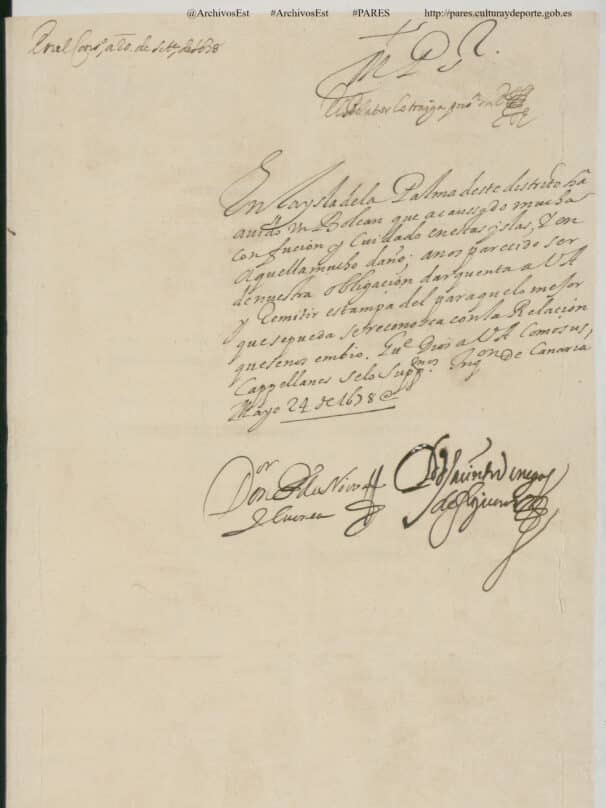 @ArchivosEst #ArchivosEst #PARES http://pares.culturaydeporte.gob.es
En el Cons.º a 20. de 1678
M. P. S.
En la ysla de la Palma deste destrito ha
auido Un Bolcan que a caussado mucha
confuçion y Cuidado en estas yslas, y en
aquella mucho daño; anos parecido ser
de nuestra obligación dar quenta a VA
y Remitir estampa del para que lo mejor
que se pueda se reconozca con la Relación
que se nos embio. Gu.e Dios a VA Como sus
Cappellanes se lo Supp.mos Inq.on de Canaria
Mayo 24 de 1678
D.or Don
de Cuenca de